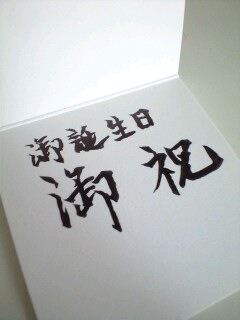 御誕生日
御祝